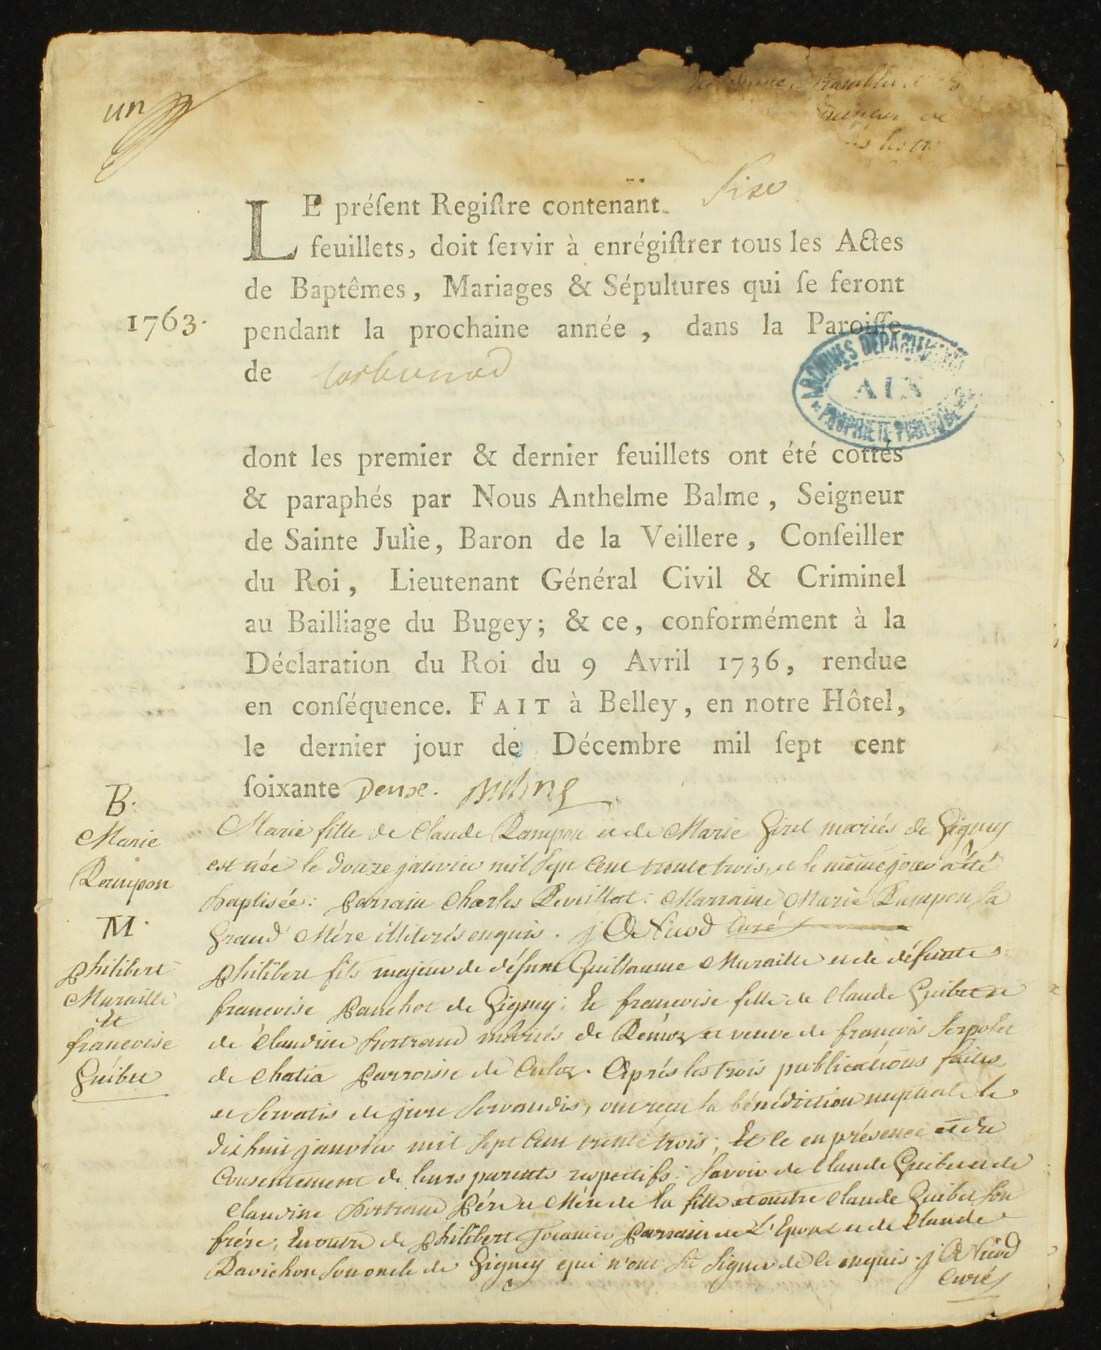 un
LE préſent Regiſtre contenant Size
feuillets, doit ſervir à enrégiſtrer tous les Actes
de Baptêmes, Mariages & Sépultures qui ſe feront
1763. pendant la prochaine année, dans la Paroiſſe
de Corbonod
ARCHIVES DEPARTEMENTALES
AIN
PROPRIÉTÉ PUBLIQUE
dont les premier & dernier feuillets ont été cottés
& paraphés par Nous Anthelme Balme, Seigneur
de Sainte Julie, Baron de la Veillere, Conſeiller
du Roi, Lieutenant Général Civil & Criminel
au Bailliage du Bugey; & ce, conformément à la
Déclaration du Roi du 9 Avril 1736, rendue
en conſéquence. FAIT à Belley, en notre Hôtel,
le dernier jour de Décembre mil ſept cent
ſoixante Deux.
B.
Marie
Rampon
Marie fille de Claude Rampon et de Marie Giret mariés de Gigney
est née le douze janvier mil sept cent trente trois, et le même jour a été
baptisée: parrain Charles Reveillat: Marraine Marie Rampon, sa
Grand' Mére illiterés enquis. j. De Nicod Curé
M.
Philibert
Muraille
et
francoise
Guibet
Philibert fils majeur de défunt Guillaume Muraille et de défunte
francoise Panchot de Gigney; Et francoise fille de Claude Guibet et
de Claudine bertrand mariés de Rémoz et veuve de francois Serpolet
de Chatia parroisse de Culoz. Aprés les trois publications faites
et Servatis de jure Servandis, ont recu la bénédiction nuptiale le
dix huit janvier mil sept cent trente trois; Et ce en présence et du
Consentement de leurs parents respectifs: savoir de Claude Guibet et de
Claudine bertrand Pére et Mére de la fille et outre Claude Guibet son
frére, En outre de Philibert parrain de L'Epoux et de Claude
Ravichon son oncle de Gigney qui n'ont sû signer de ce enquis. j. De Nicod
Curé